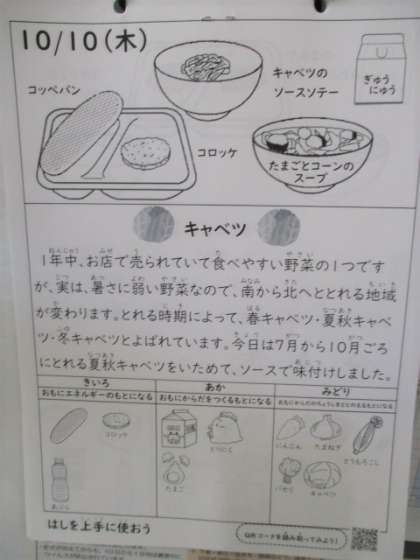 10/10(木)
コッペパン
キャベツの
ソースソテー
ぎゅう
にゅう
コロッケ
たまごとコーンの
スープ
キャベツ
1年中、お店で売られていて食べやすい野菜の1つです
が、実は、暑さに弱い野菜なので、南から北へととれる地域
が変わります。とれる時期によって、春キャベツ・夏秋キャベ
ツ・冬キャベツとよばれています。今日は7月から10月ごろ
にとれる夏秋キャベツをいためて、ソースで味付けしました。
きいろ
あか
みどり
おもにエネルギーのもとになる
おもにからだをつくるもとになる
おもにからだのちょうしをととのえるもとになる
コロッケ
とりにく
にんじん
たまねぎ
とうもろこし
たまご
パセリ
キャベツ
あぶら
はしを上手に使おう
QRコードを読み取ってみよう!